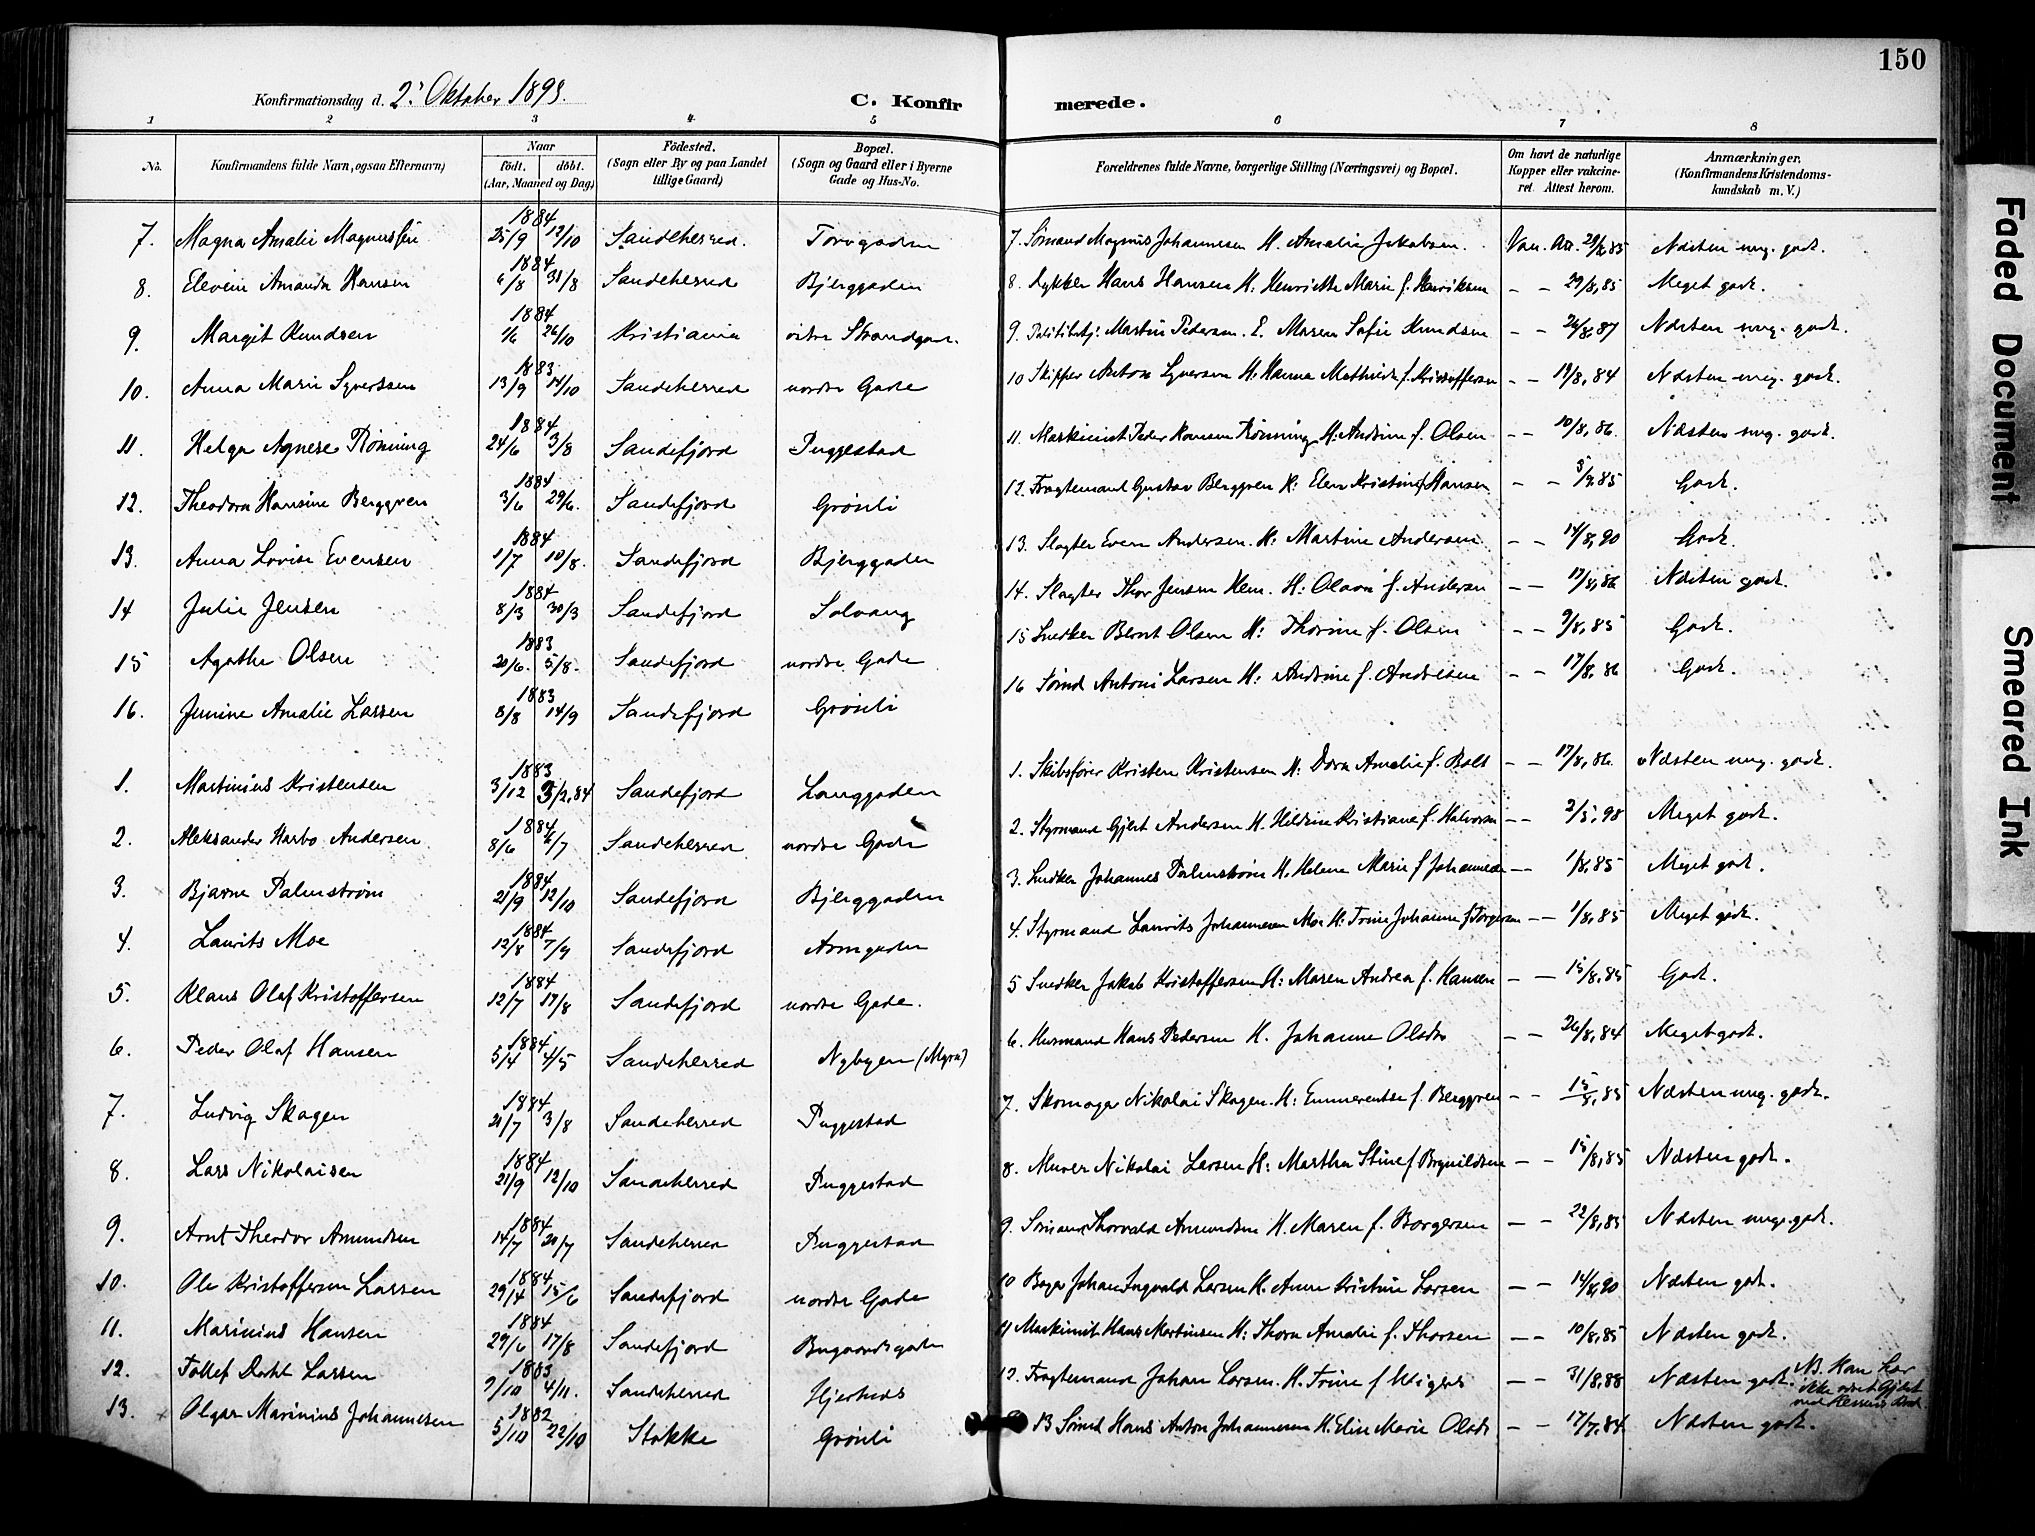 150
Konfirmationsdag d. 2' Oktober 1898.
C. Konfirmerede.
1 2 3 4 5 6 7 8
No. Konfirmandens fulde Navn, ogsaa Efternavn) Naar født. døbt. (Aar, Maaned og Dag) Födested. (Sogn eller By og paa Landet tillige Gaard) Bopæl. (Sogn og Gaard eller i Byerne Gade og Hus-No. Forældrenes fulde Navne, borgerlige Stilling (Næringsvei) og Bopæl. Om havt de naturlige Kopper eller vakcineret. Attest herom. Anmærkninger. (Konfirmandens Kristendomskundskab m. V.)
7. Magna Amalie 1884 25/9 12/10 Sandeherred. Torvgaden 7. Sømand Magnus Johannesen H. Amalie Jakobsen. Vac. Att. 85 Næsten mg. godt.
8. Amanda Hansen 1884 6/8 31/8 Sandeherred Bjerggaden 8. Hans Hansen H. Henriette Marie f. Henriksen - - 29/8,85 Meget godt.
9. Margit Knudsen 1884 1/6 26/10 Kristiania Strandgad. 9. Martin Pedersen. E. Maren Sofie Knudsen - - 26/8,87 Næsten mg. godt.
10. Anna Marie Syversen 1883 13/9 14/10 Sandeherred nordre Gade 10 Skipper Anton Syversen H. Hanna Mathilde f. Kristoffersen - - 19/8,84 Næsten mg. godt.
11. Helga Agnese Rönning 1884 24/6 3/8 Sandefjord Puggestad 11. Maskinist Peder Hansen Rönning H. Andrine f. Olsen - - 10/8,86. Næsten mg. godt.
12. Theodora Hansine Berggren 1884 3/6 29/6. Sandefjord Grönli 12. Fragtemand Gustav Berggren H. Elen Kristine f. Hansen - - 85 Godt.
13. Anna Lovise Evensen 1884 1/7 10/8. Sandefjord Bjerggaden 13. Slagter Even Andersen. H. Martine Andersen - - 14/8,90 Godt.
14 Julie Jensen 1884 8/3 30/3 Sandefjord Solvang 14. Slagter Thor Jensen H: f. Andersen - - 17/8,86 Næsten godt.
15 Agathe Olsen 1883 20/6. 5/8. Sandefjord nordre Gade 15 Snedker Bernt Olsen H: Thorine f. Olsen - - 9/8,85 Godt.
16. Jenine Amalie Larsen 1883 8/8 14/9 Sandefjord Grönli 16 Sömd Antoni Larsen H: Andrine f. Andersen - - 17/8,86 Godt.
1. Martinius Kristensen 1883 3/12 3/2,84 Sandefjord Langgaden 1. Skibsfører Kristen Kristensen H: Dora Amalie f. - - 17/8,86. Næsten mg. godt.
2. Aleksander Harbo Andersen 1884 8/6 6/7 Sandeherred nordre Gade 2. Styrmand Gjert Andersen H. Kristiane f. Halvorsen - - 2/5,98 Meget godt.
3. Bjarne Palmström 1884 21/9 12/10 Sandefjord Bjerggaden 3. Snedker Johannes Palmström H. Helene Marie f. Johannesen - - 1/8,85 Meget godt.
4. Laurits Moe 1884 12/8 7/9 Sandefjord 4. Styrmand Laurits Johannesen Moe H: Trine Johanne f. Torgersen - - 1/8,85 Meget godt.
5. Klaus Olaf Kristoffersen 1884 12/7 17/8 Sandefjord nordre Gade. 5 Snedker Jakob Kristoffersen H: Maren Andrea f. Hansen - - 15/8,85 Godt.
6. Peder Olaf Hansen 1884 5/4 4/5 Sandeherred Nybyen (Myra) 6. Husmand Hans Pedersen H. Johanne Olsdtr - - 26/8,84 Meget godt.
7. Ludvig Skagen 1884 21/7 3/8 Sandeherred Puggestad 7. Skomager Nikolai Skagen. H: Emmerentse f. Berggren - - 15/8,85 Næsten mg. godt.
8. Lars Nikolaisen 1884 21/9 12/10 Sandeherred Puggestad 8. Murer Nikolai Larsen H: Martha Stine f. Brynildsen - - 15/8,85 Næsten godt.
9. Arnt Theodor Amundsen 1884 14/7 20/7 Sandeherred Puggestad 9. Sömand Thorvald Amundsen H. Maren f. Borgersen - - 22/8,85 Næsten mg. godt.
10. Ole Kristoffersen Larsen 1884 29/4 15/6 Sandefjord nordre Gade 10 Bager Johan Ingvald Larsen H. Anne Kristine Larsen - - 14/8,90 Næsten godt.
11. Marinius Hansen 1884 29/6 17/8 Sandefjord Bugaardsgaden 11 Maskinist Hans Martinsen H: Thora Amalie f. Thorsen - - 10/8,85 Næsten godt.
12. Tollef Dahl Larsen 1883 9/10 4/11. Sandeherred Hjerthnes 12. Fragtemand Johan Larsen. H. Trine f. - - 31/8,88 Næsten godt. NB. Han har ikke været
13. Olgar Marinius Johannesen 1882 5/10 22/10 Stokke Grönli 13 Sömd Hans Anton Johannesen H. Elen Marie Olsdtr - - 17/7,84 Næsten godt.
Faded Document
Smeared Ink